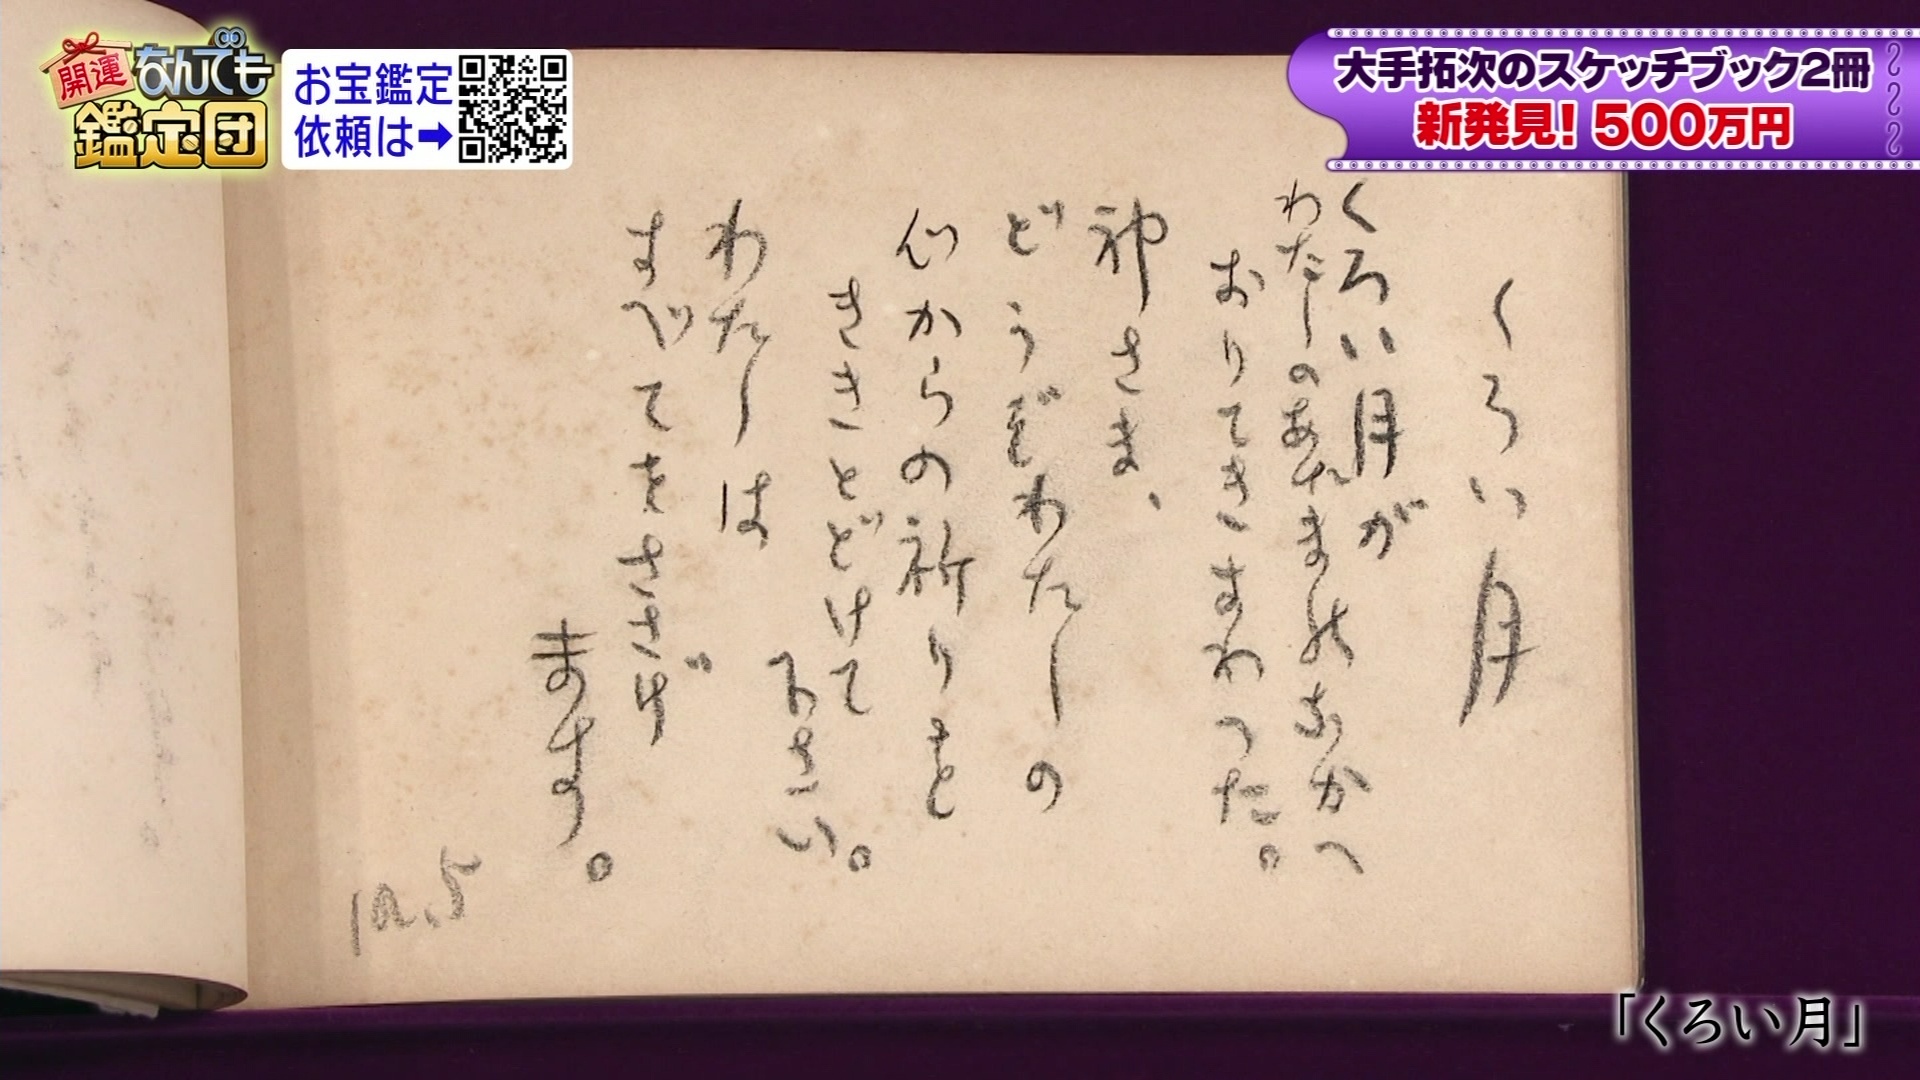 開運
なんでも
鑑定団
お宝鑑定
依頼は➡
大手拓次のスケッチブック2冊
新発見!500万円
くろい月
くろい月が
わたしのあたまのなかへ
おりてきまわつた。
神さま、
どうぞわたしの
心からの祈りを
ききとどけて
下さい。
わたしは
すべてをささげ
ます。
「くろい月」